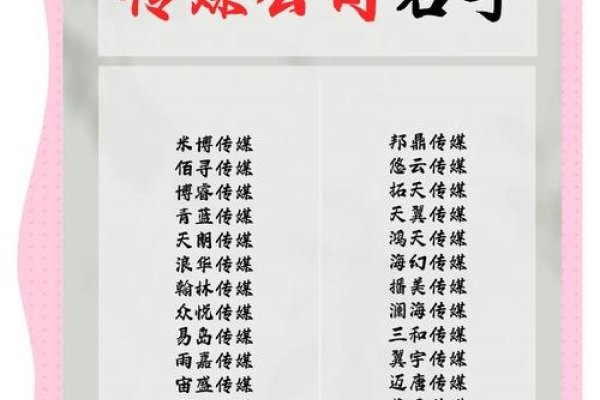 传媒公司名字
米博传媒
佰寻传媒
博睿传媒
青蓝传媒
天朗传媒
浪华传媒
翰林传媒
众悦传媒
易岛传媒
雨嘉传媒
宙盛传媒
邦鼎传媒
悠云传媒
拓天传媒
天翼传媒
鸿天传媒
海幻传媒
播美传媒
澜海传媒
三和传媒
翼宇传媒
迈唐传媒